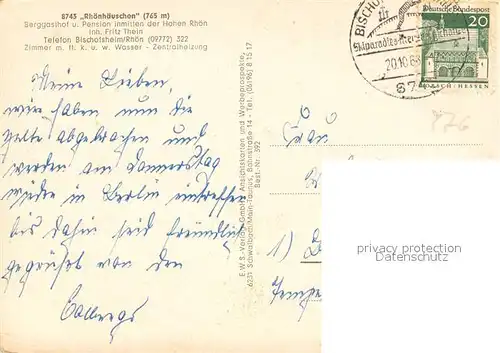 8743 „Rhönhäuschen" (765 m)
Berggasthof u. Pension inmitten der Hohen Rhön
Inh. Fritz Thein
Telefon Bischofsheim/Rhön (09772) 322
Zimmer m. fl. k. u. w. Wasser - Zentralheizung
Meine Lieben,
wir haben nun die
Zelte abgebrochen und
werden am Donnerstag
wieder in Berlin eintreffen
bis dahin seid freundlich
gegrüßt von den
E.W.B.-Verlag GmbH, Ansichtskarten und Werbeprospekte,
6233 Schwalbach/Main-Taunus, Bahnstraße 14 - Tel. (06196) 8 15 17
Best.-Nr. 392
BISCHO
Skiparadies
20.10.68
Deutsche Bundespost
20
LORSCH/HESSEN
976
Frau
1)
privacy protection
DSGVO